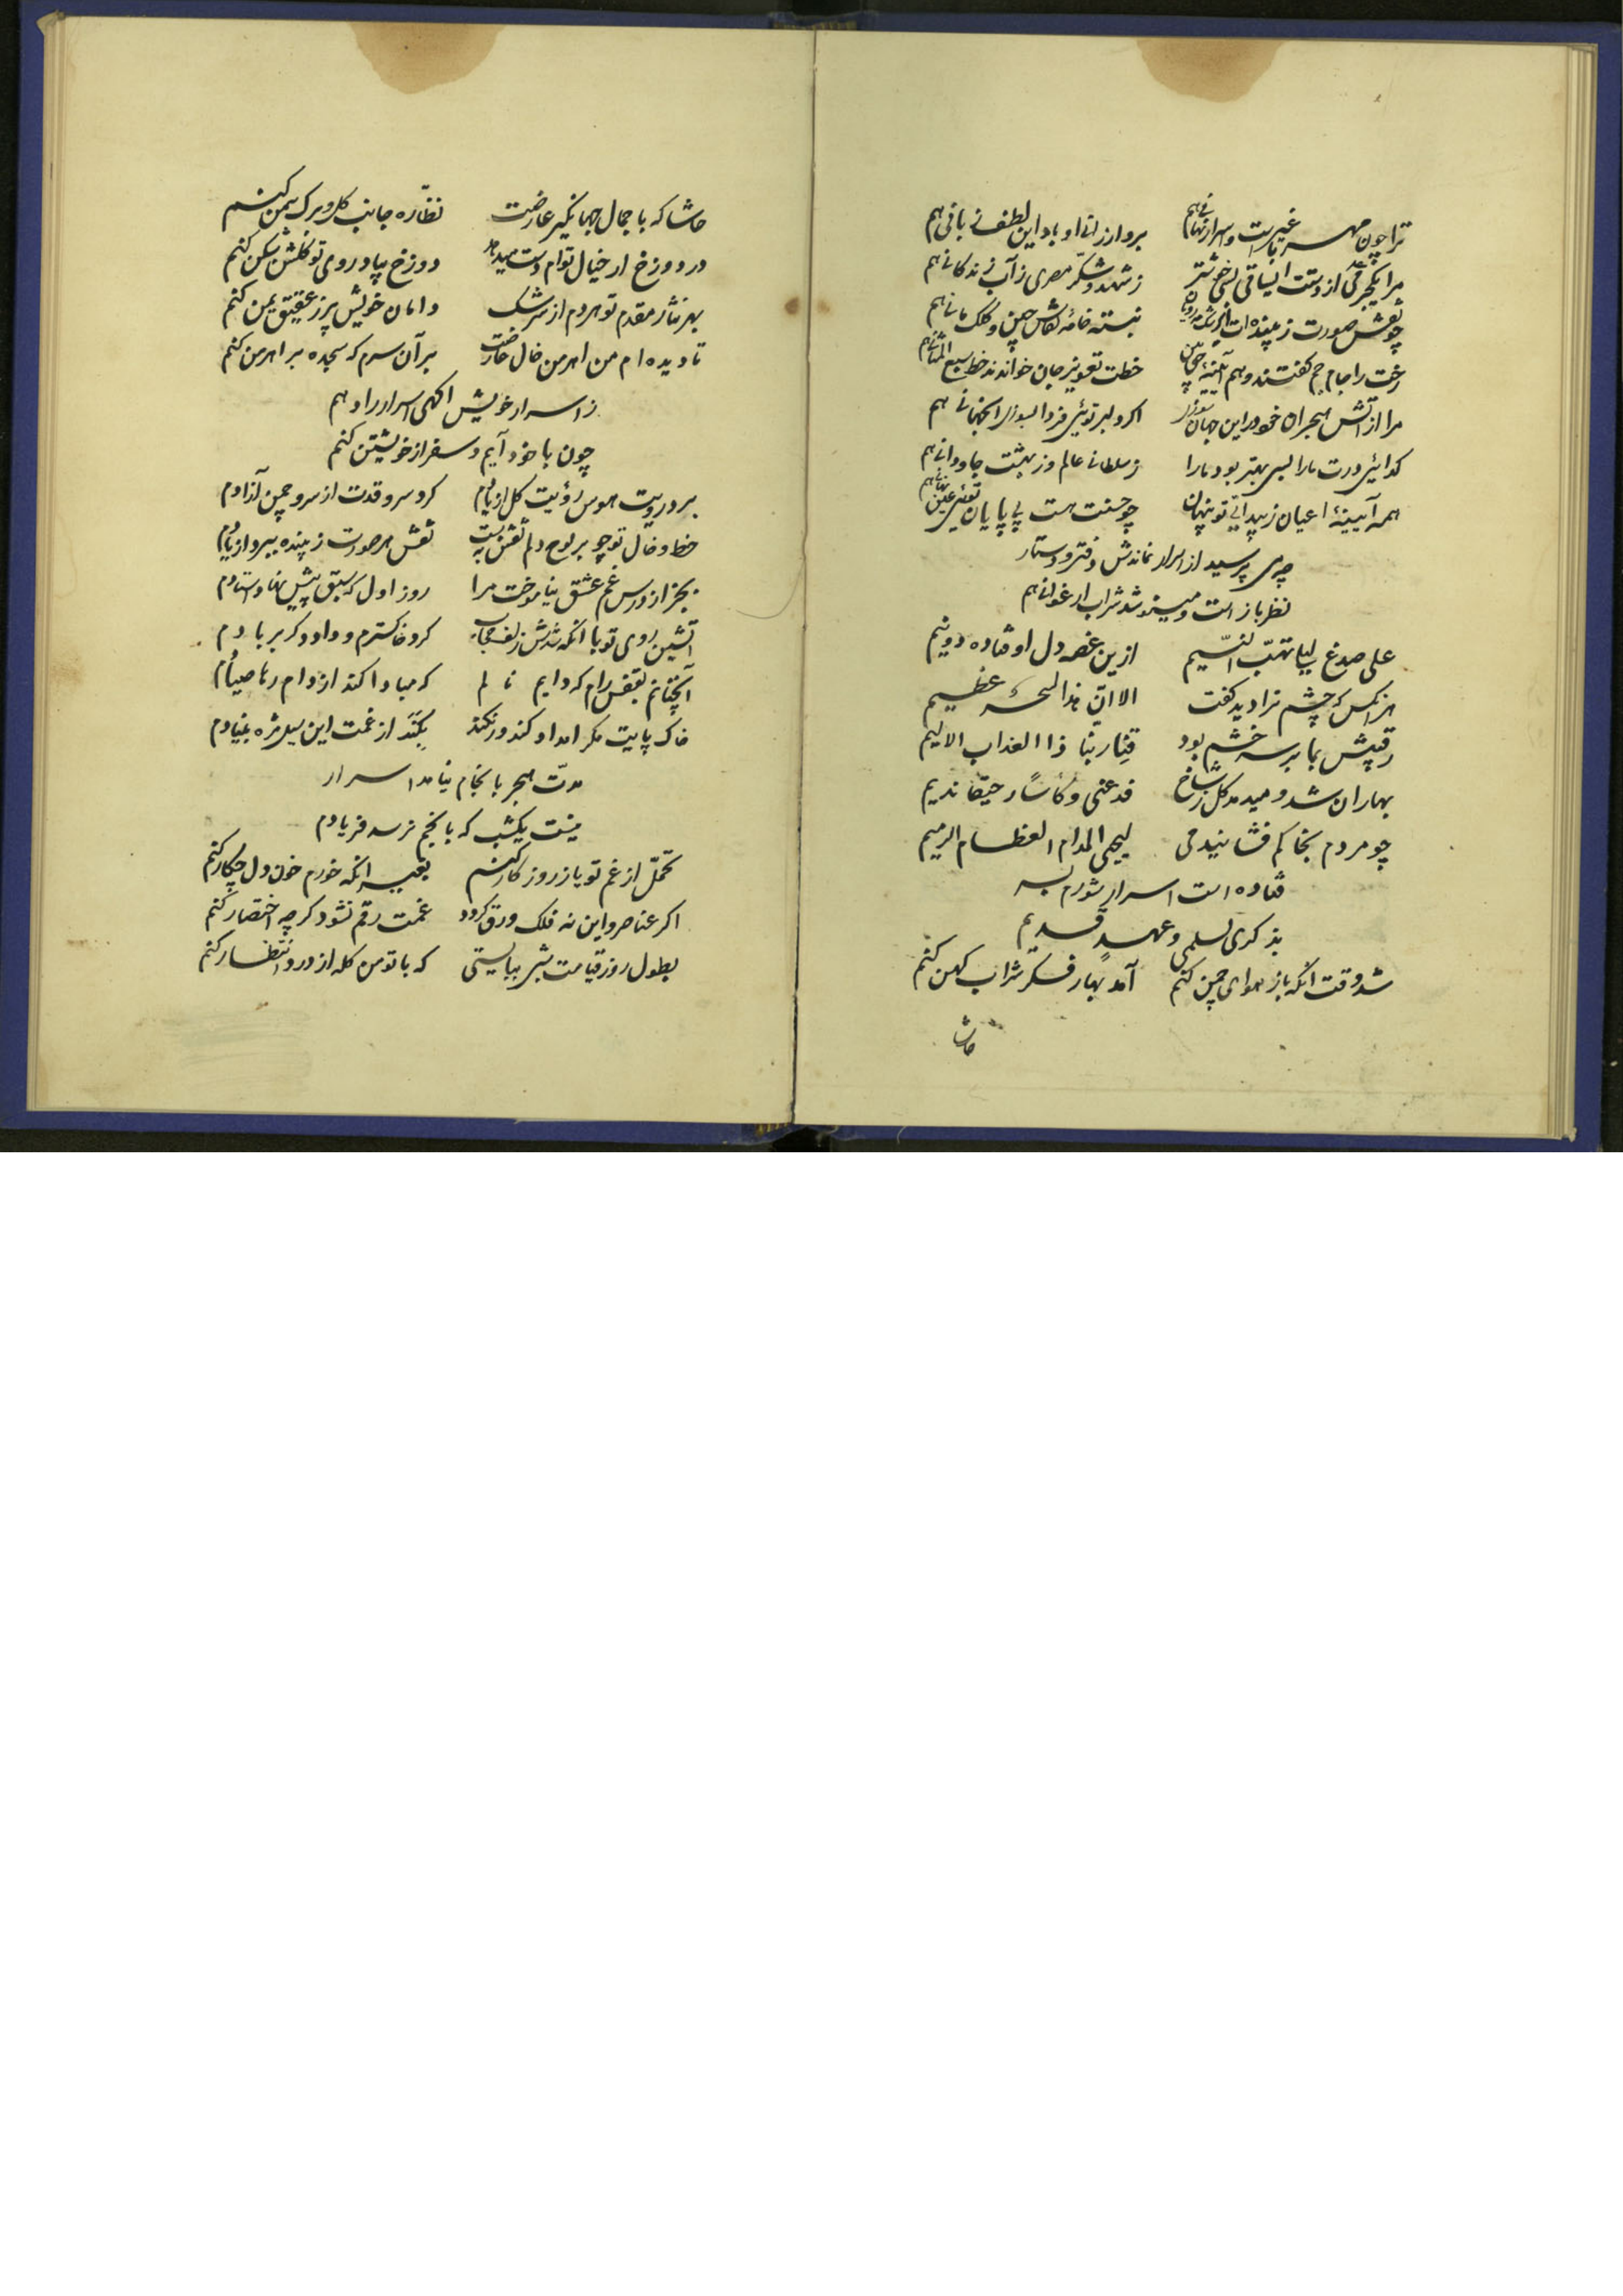 ترا چون مهر با غیر است و اسرار نهانی هم بر او ارزانی او باد این لطف زبانی هم
مرا یکجرعه می از دستت ای ساقی بسی خوشتر ز شهد و شکر مصری ز آب زندگانی هم
چو نقش صورت زیبنده‌ات ای نبسته خامهٔ نقاش چین و کلک مانی هم
رخت را جام جم گفتند و هم آئینهٔ خطت تعویذ جان خواندند خط سبع المثانی هم
مرا از آتش هجران خود در این جهان سوزی اگر دلبر توئی فردا بسوزی آنجهانی هم
گدائی درت ما را بسی بهتر بود ما را ز سلطانی عالم وز بهشت جاودانی هم
همه آیینهٔ اعیان ز پیدائی تو پنهان چو حسنت هست بی پایان توئی عین نهانی هم
چه می پرسید از اسرار نماندش دفتر و دستار
نظرباز است و مینوشد شراب ارغوانی هم
علی صدغ لیلی تهب النسیم ازین غصه دل اوفتاده دو نیم
هر آنکس که چشم ترا دید گفت الا ان هذا لسحر عظیم
رقیبش بما بر سر خشم بود قنا ربنا ذا العذاب الالیم
بهاران شد و میدمد گل ز شاخ فدعنی و کأسا رحیقا ندیم
چو مردم بخاکم فشانید می لیحیی المدام العظام الرمیم
فتاده است اسرار شورم بسر
بذکری لسلمی و عهد قدیم
شد وقت آنکه باز هوای چمن کنم آمد بهار فکر شراب کهن کنم
حاشا
حاشا که با جمال جهانگیر عارضت نظاره جانب گل و برگ سمن کنم
در دوزخ ار خیال توام دست میدهد دوزخ بیاد روی تو گلشن شکن کنم
بهر نثار مقدم تو هر دم از سرشک دامان خویش پر ز عقیق یمن کنم
تا دیده‌ام من اهرمن خال عارضت بر آن سرم که سجده بر اهرمن کنم
ز اسرار خویش آگهی اسرار را دهم
چون با خود آیم و سفر از خویشتن کنم
برد رویت هوس رؤیت گل از یادم کرد سرو قدت از سرو چمن آزادم
خط و خال تو چو بر لوح دلم نقش به بست نقش هر صورت زیبنده ببرد از یادم
بجز از درس غم عشق نیاموخت مرا روز اول که سبق پیش نهاد استادم
آتشین روی تو با آنکه شدش زلف حجاب کرد خاکسترم و داد دگر بر بادم
آنچنانم بقفس رام که دایم نالم که مبادا کند از دام رها صیادم
خاک پایت مگر امداد کند ورنه کند بکند از غمت این سیل مژه بنیادم
مدت هجر بانجام نیامد اسرار
نیست یکشب که بانجم نرسد فریادم
تحمل از غم تو یا ز روزگار کنم بغیر آنکه خورم خون دل چکار کنم
اگر عناصر و این نه فلک ورق گردد غمت رقم نشود گرچه اختصار کنم
بطول روز قیامت شبی ببایستی که با تو من گله از درد انتظار کنم